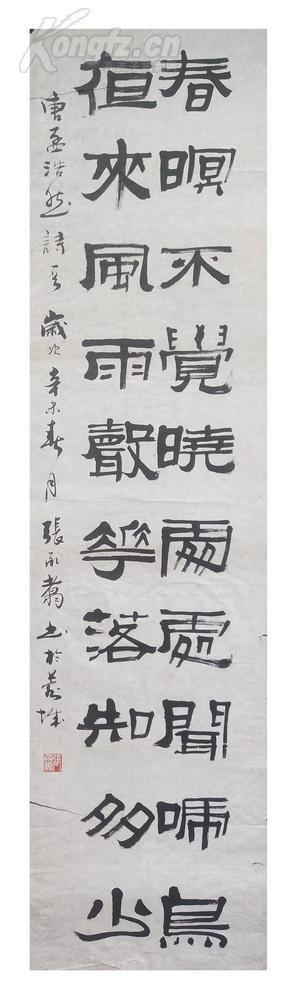 春暝不覺曉處處聞啼鳥
夜來風雨聲花落知多少
唐孟浩然詩一首歲次辛未春月張永
書於
Kongfz.cn